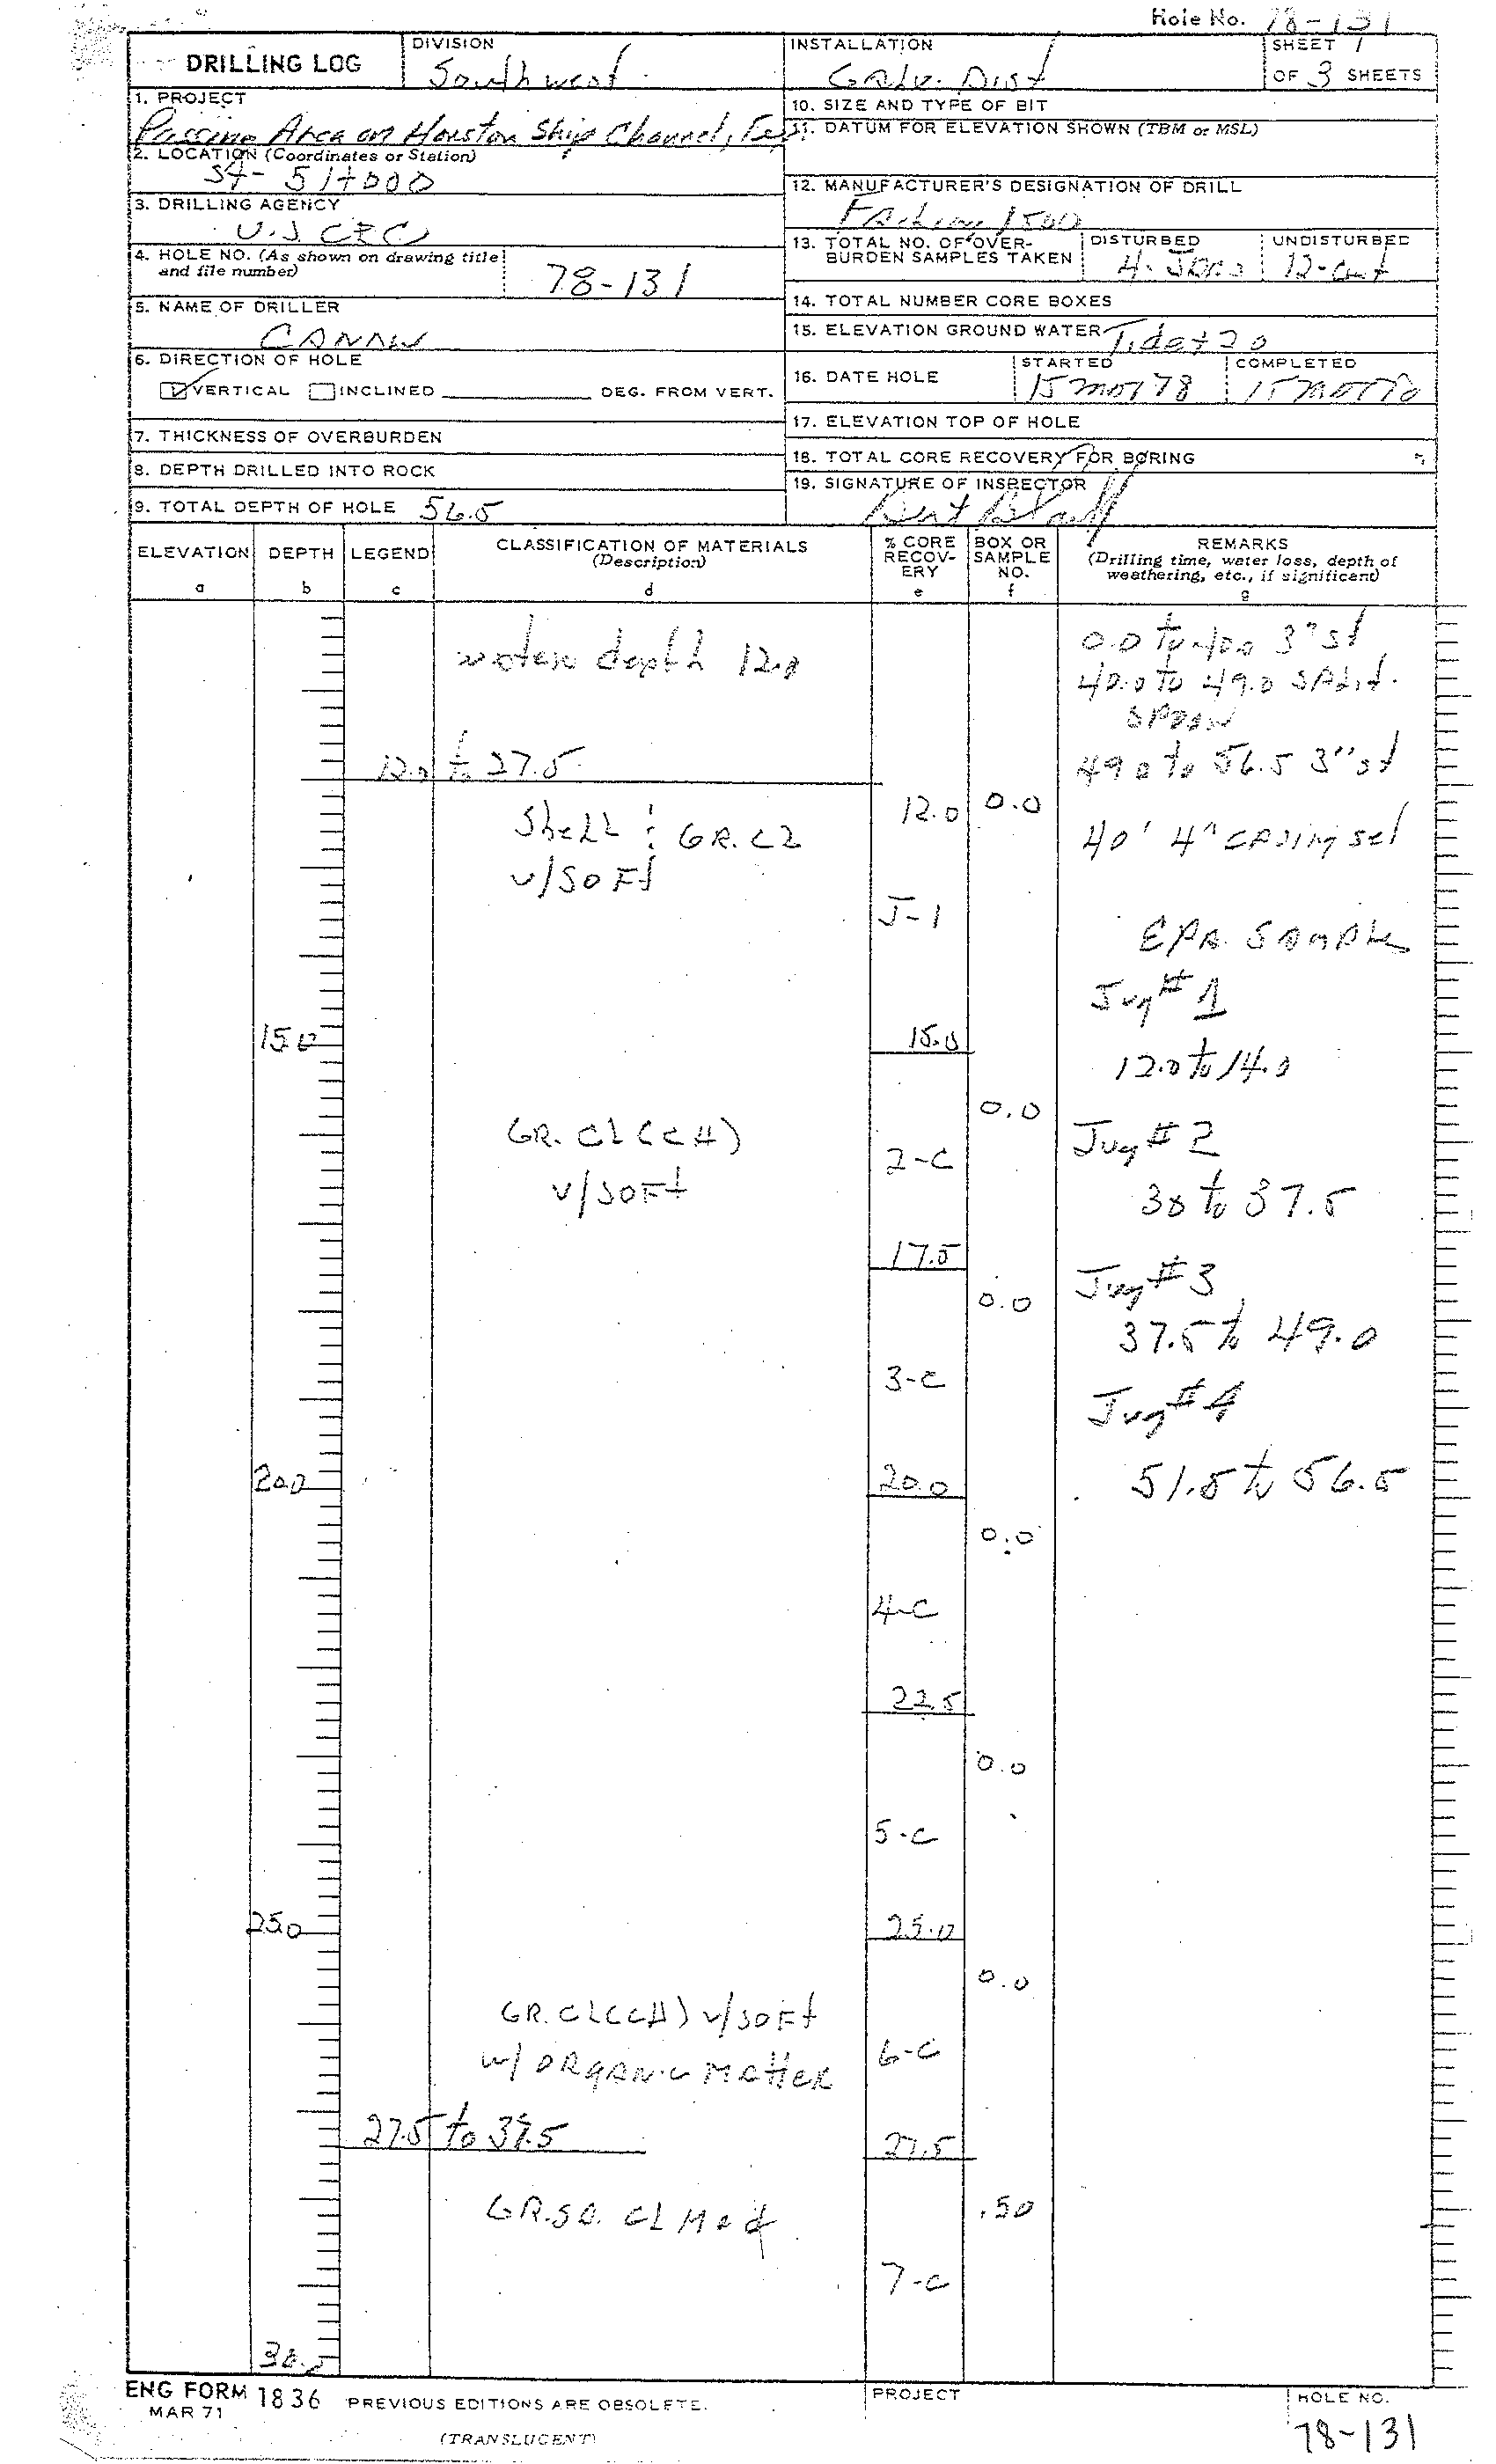 Hole No. 78-131
DRILLING LOG
DIVISION
Southwest
INSTALLATION
Galv. Dist
SHEET 1
OF 3 SHEETS
1. PROJECT
Passing Area on Houston Ship Channel, Tex
10. SIZE AND TYPE OF BIT
11. DATUM FOR ELEVATION SHOWN (TBM or MSL)
2. LOCATION (Coordinates or Station)
St- 51+000
12. MANUFACTURER'S DESIGNATION OF DRILL
Failing 1500
3. DRILLING AGENCY
U.S CEC
13. TOTAL NO. OF OVER-
BURDEN SAMPLES TAKEN
DISTURBED
4. JARS
UNDISTURBED
12-Cut
4. HOLE NO. (As shown on drawing title
and file number)
78-131
14. TOTAL NUMBER CORE BOXES
5. NAME OF DRILLER
15. ELEVATION GROUND WATER Tide +20
6. DIRECTION OF HOLE
VERTICAL INCLINED DEG. FROM VERT.
16. DATE HOLE
STARTED
15 Mar 78
COMPLETED
15 Mar 78
7. THICKNESS OF OVERBURDEN
17. ELEVATION TOP OF HOLE
8. DEPTH DRILLED INTO ROCK
18. TOTAL CORE RECOVERY FOR BORING
9. TOTAL DEPTH OF HOLE 56.5
19. SIGNATURE OF INSPECTOR
ELEVATION
a
DEPTH
b
LEGEND
c
CLASSIFICATION OF MATERIALS
(Description)
d
% CORE
RECOV-
ERY
e
BOX OR
SAMPLE
NO.
f
REMARKS
(Drilling time, water loss, depth of
weathering, etc., if significant)
g
water depth 12.0
0.0 to 40.0 3" st
40.0 to 49.0 SPlit.
SPOON
12.0 to 27.5
49.0 to 56.5 3" st
Shell & GR. CL
v/SOFt
12.0
0.0
40' 4" CASING set
J-1
EPA. SAMPLe
Jug # 1
15.0
15.0
12.0 to 14.0
0.0
GR. CL (CH)
v/SOFt
2-C
Jug # 2
30 to 37.5
17.5
0.0
Jug # 3
37.5 to 49.0
3-C
Jug # 4
20.0
20.0
51.5 to 56.5
0.0
4-C
22.5
0.0
5-C
25.0
25.0
0.0
GR. CL (CH) v/SOFt
w/ ORGANIC MAtteR
6-C
27.5 to 37.5
27.5
GR. SA. CL Med
.50
7-C
30.0
ENG FORM 1836
MAR 71
PREVIOUS EDITIONS ARE OBSOLETE.
(TRANSLUCENT)
PROJECT
HOLE NO.
78-131